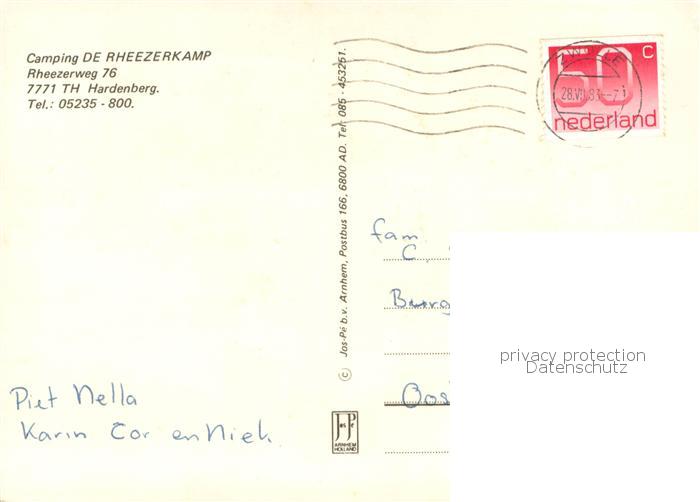 Camping DE RHEEZERKAMP
Rheezerweg 76
7771 TH Hardenberg.
Tel.: 05235 - 800.
© Jos-Pé b.v. Arnhem, Postbus 166, 6800 AD. Tel: 085 - 453251.
60 C
nederland
28.VII.83
fam.
C.
Burg
Oos
privacy protection
Datenschutz
Piet Nella
Karin Cor en Niek
JosPé
ARNHEM
HOLLAND